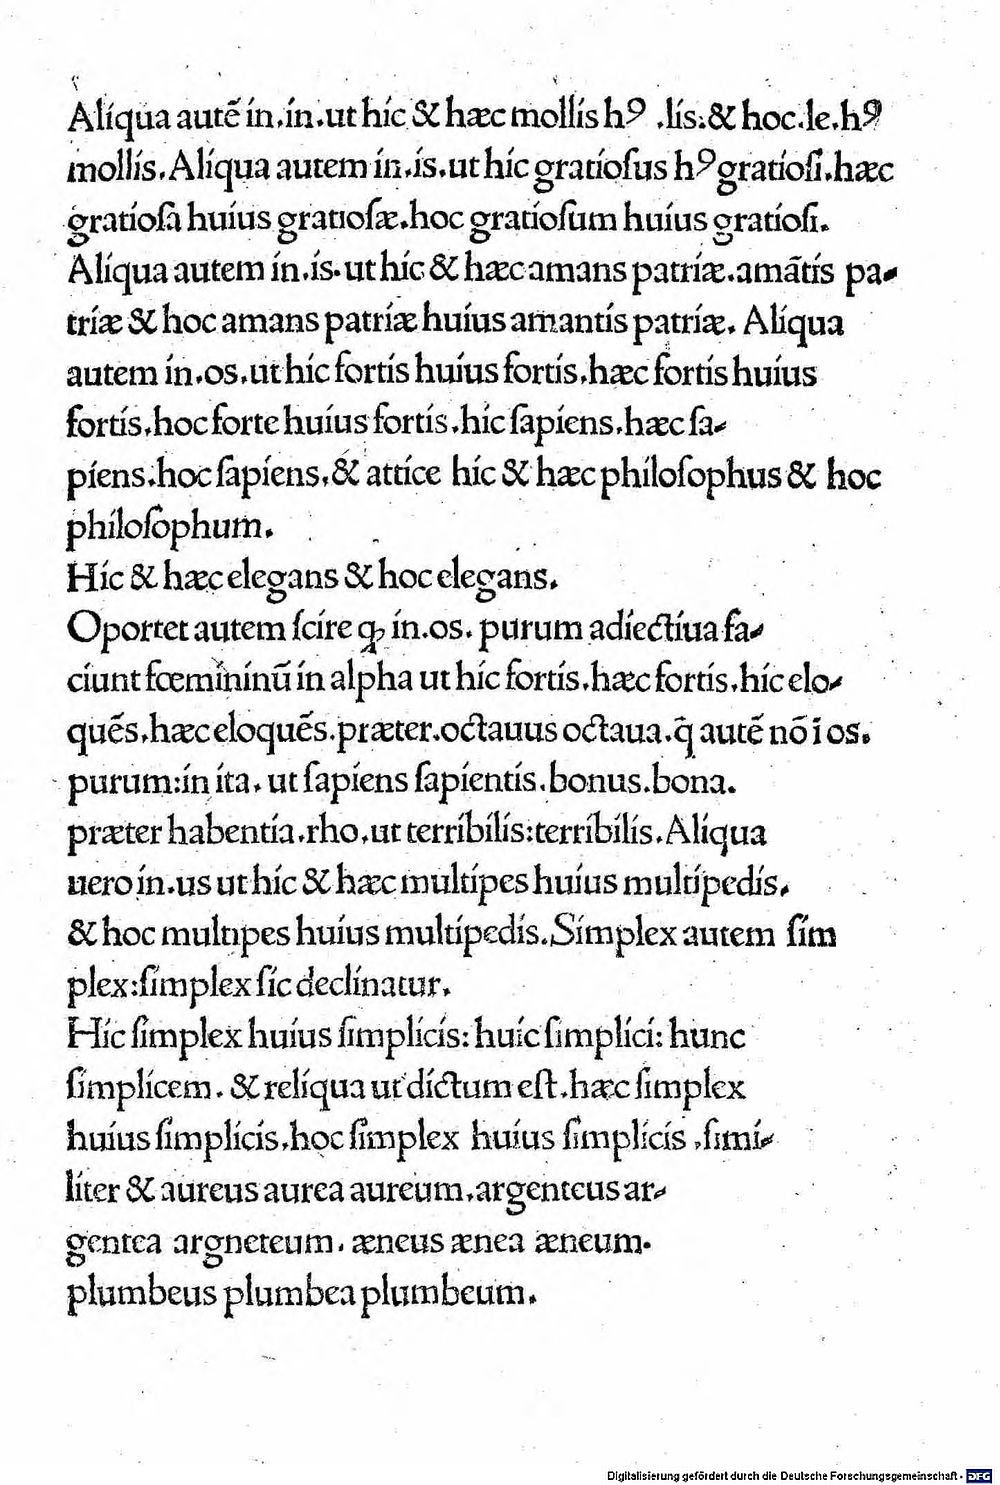 Aliqua autẽ in.in.ut hic & hæc mollis hꝰ .lis:& hoc.le.hꝰ
mollis.Aliqua autem in.is.ut hic gratioſus hꝰ gratioſi.hæc
gratioſa huius gratioſæ.hoc gratioſum huius gratioſi.
Aliqua autem in.is.ut hic & hæc amans patriæ.amãtis pa-
triæ & hoc amans patriæ huius amantis patriæ. Aliqua
autem in.os.ut hic fortis huius fortis.hæc fortis huius
fortis.hoc forte huius fortis.hic ſapiens.hæc ſa-
piens.hoc ſapiens.& attice hic & hæc philoſophus & hoc
philoſophum.
Hic & hæc elegans & hoc elegans.
Oportet autem ſcire ꝙ in.os. purum adiectiua fa-
ciunt fœmininũ in alpha ut hic fortis.hæc fortis.hic elo-
quẽs.hæc eloquẽs.præter.octauus octaua.q̃ autẽ nõ ĩ os.
purum:in ita. ut ſapiens ſapientis.bonus.bona.
præter habentia.rho.ut terribilis:terribilis.Aliqua
uero in.us ut hic & hæc multipes huius multipedis.
& hoc multipes huius multipedis.Simplex autem ſim
plex:ſimplex ſic declinatur.
Hic ſimplex huius ſimplicis: huic ſimplici: hunc
ſimplicem. & reliqua ut dictum eſt.hæc ſimplex
huius ſimplicis.hoc ſimplex huius ſimplicis .ſimi-
liter & aureus aurea aureum.argenteus ar-
gentea argneteum. æneus ænea æneum.
plumbeus plumbea plumbeum.
Digitalisierung gefördert durch die Deutsche Forschungsgemeinschaft - DFG